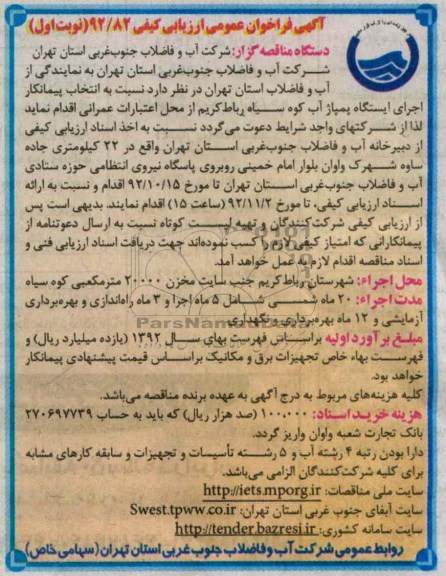 آگهی فراخوان عمومی ارزیابی کیفی ۹۲/۸۲ (نوبت اول)
دستگاه مناقصه گزار: شرکت آب و فاضلاب جنوب‌غربی استان تهران
شــرکت آب و فاضلاب جنوب‌غربی استان تهران به نمایندگی از
آب و فاضلاب استان تهران در نظر دارد نسبت به انتخاب پیمانکار
اجرای ایستگاه پمپاژ آب کوه سیاه رباط‌کریم از محل اعتبارات عمرانی اقدام نماید
لذا از شــرکتهای واجد شرایط دعوت می‌گردد نسبت به اخذ اسناد ارزیابی کیفی
از دبیرخانه آب و فاضلاب جنوب‌غربی استان تهران واقع در ۲۲ کیلومتری جاده
ساوه شهرک واوان بلوار امام خمینی روبروی پاسگاه نیروی انتظامی حوزه ستادی
آب و فاضلاب جنوب‌غربی استــان تهران تا مورخ ۹۲/۱۰/۱۵ اقدام و نسبت به ارائه
اسناد ارزیابی کیفی، تا مورخ ۹۲/۱۱/۲ (ساعت ۱۵) اقدام نمایند. بدیهی است پس
از ارزیابی کیفی شرکت‌کنندگان و تهیه لیست کوتاه نسبت به ارسال دعوتنامه از
پیمانکارانی که امتیاز کیفی لازم را کسب نموده‌اند جهت دریافت اسناد ارزیابی فنی و
اسناد مناقصه اقدام لازم به عمل خواهد آمد.
محل اجراء: شهرستان رباط‌کریم جنب سایت مخزن ۲۰۰۰۰ مترمکعبی کوه سیاه
مدت اجراء: ۲۰ ماه شمسی شــامل ۵ ماه اجرا و ۳ ماه راه‌اندازی و بهره‌برداری
آزمایشی و ۱۲ ماه بهره‌برداری و نگهداری
مبلــغ برآورد اولیه براساس فهرست بهای ســال ۱۳۹۲ (یازده میلیارد ریال) و
فهرست بهاء خاص تجهیزات برق و مکانیک براساس قیمت پیشنهادی پیمانکار
خواهد بود.
کلیه هزینه‌های مربوط به درج آگهی به عهده برنده مناقصه می‌باشد.
هزینه خریــد اسناد: ۱۰۰،۰۰۰ (صد هزار ریال) که باید به حساب ۲۷۰۶۹۷۷۳۹
بانک تجارت شعبه واوان واریز گردد.
دارا بودن رتبه ۴ رشته آب و ۵ رشــته تأسیسات و تجهیزات و سابقه کارهای مشابه
برای کلیه شرکت‌کنندگان الزامی می‌باشد.
سایت ملی مناقصات: http://iets.mporg.ir
سایت آبفای جنوب غربی استان تهران: Swest.tpww.co.ir
سایت سامانه کشوری: http://tender.bazresi.ir
روابط عمومی شرکت آب و فاضلاب جنوب غربی استان تهران (سهامی خاص)